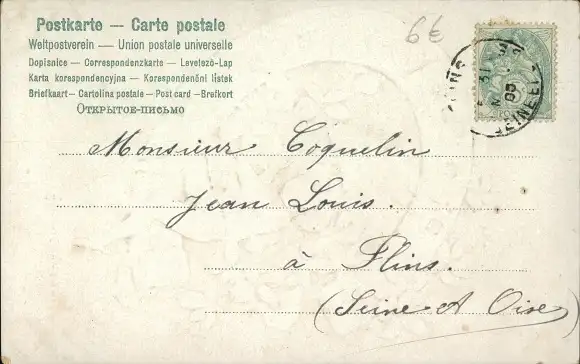 Postkarte — Carte postale
Weltpostverein — Union postale universelle
Dopisnice — Correspondenzkarte — Levelező-Lap
Karta korespondencyjna — Korespondenční lístek
Briefkaart — Cartolina postale — Post card — Brefkort
Открытое-письмо
6€
31
05
SEINE ET
Monsieur Coquelin
Jean Louis.
à Flins.
(Seine et Oise)